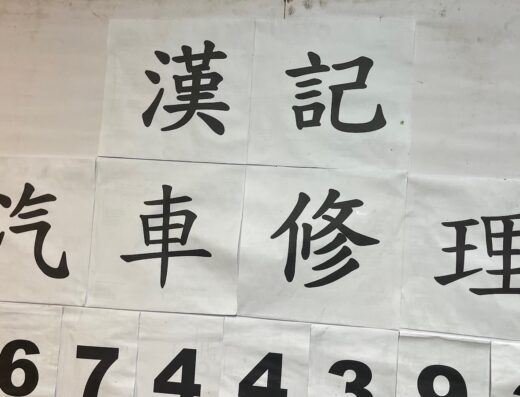 漢記
汽車修理
674439